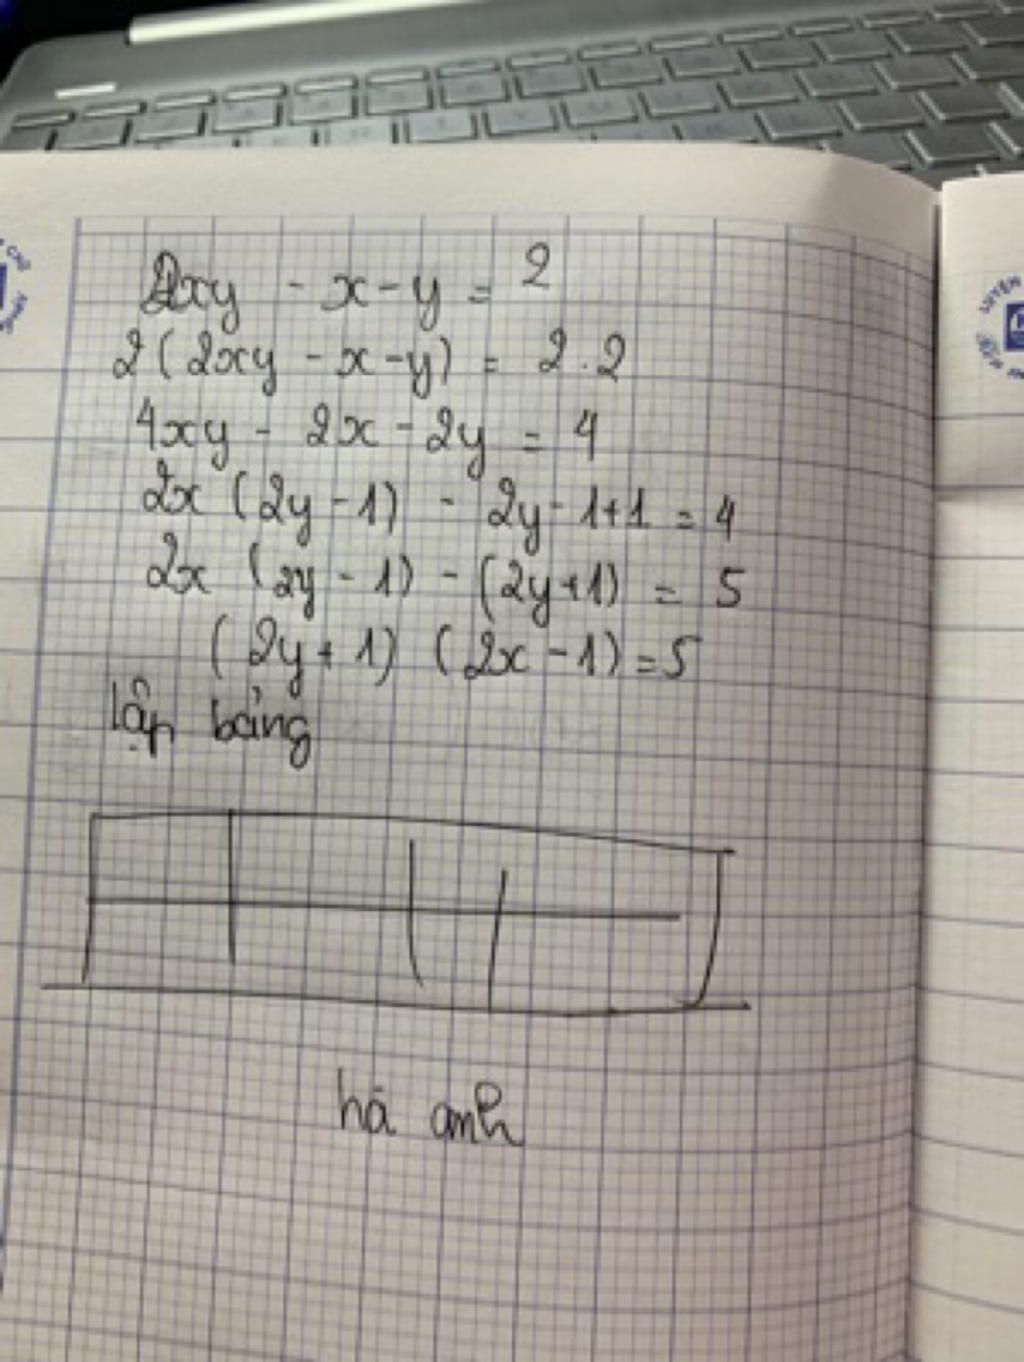 2xy - x - y = 2
2 ( 2xy - x - y) = 2 . 2
4xy - 2x - 2y = 4
2x (2y - 1) - 2y - 1 + 1 = 4
2x (2y - 1) - (2y + 1) = 5
(2y + 1) (2x - 1) = 5
lập bảng
hả anh